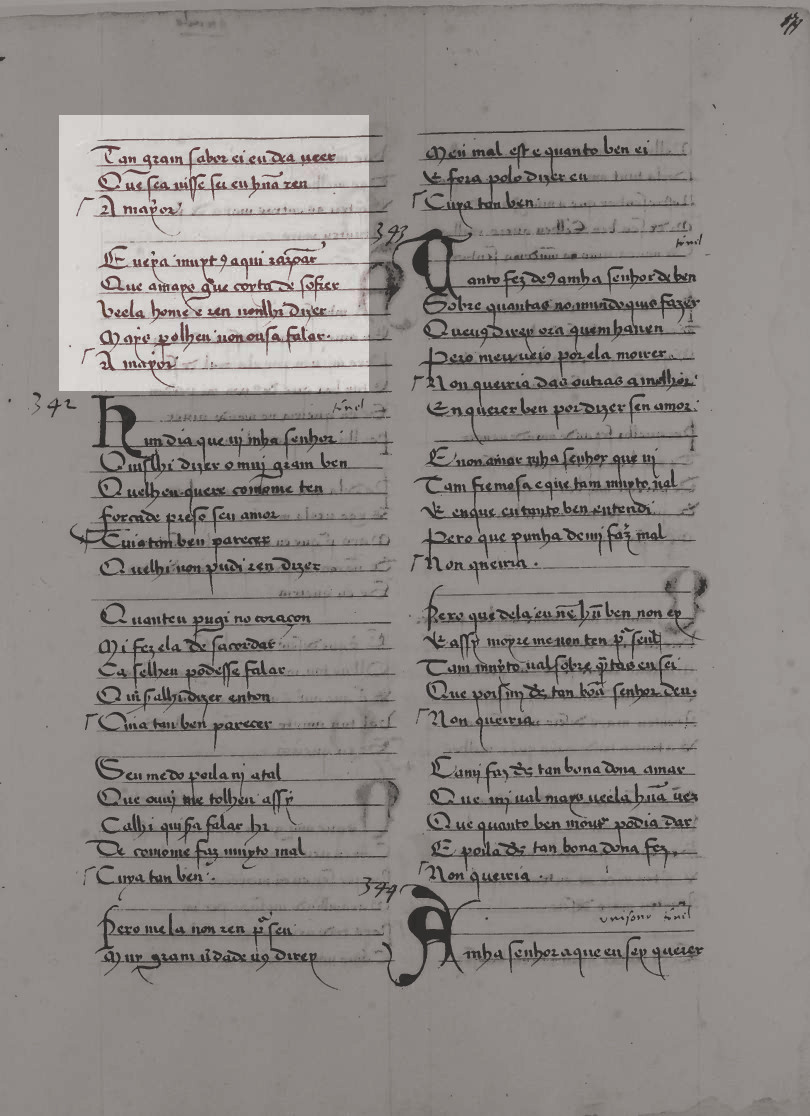 Tan gram sabor ei eu dea ueer
Que sea uisse sei eu hũa ren
A mayor
E uer̃a muyt 9 aqui razõar
Que amayo que coyta de sofrer
Veela home e ren nonlhi dizer
Mays polhen non ousa falar.
A mayor
342
tornel
Hun dia que ui mha senhor
Quislhi dizer o mui gram ben
Quelheu quere comome ten
forcade preso seu amor
Cuia tan ben parecer
Quelhi non pudi ren dizer
Quanteu pugi no coraçon
Mi fez ela desacordar
Ca selheu podesse falar
Quisalhi dizer enton
Cuia tan ben parecer
Seu medo poila ui atal
Que ouui me tolheu assy
Calhi quisa falar hi
De comome faz muyto mal
Cuya tan ben.
Pero mela non ren p̃ seu
Muy gram uerdade u9 direy
Meu mal est e quanto ben ei
E fora polo dizer eu
Cuya tan ben
343
tornel
Tanto fez de9 amha senhor de ben
Sobre quantas no mundo quis fazer
Queu9 direy ora quemhauen
Pero meu ueio por ela morrer
Non queiria das outras a melhor
En querer ben por dizer sen amor
E non amar mha senhor que ui
Tam fremosa e que tam muyto ual
E en que eu tanto ben entendi
Pero que punha de mi faz̃ mal
Non queiria.
Pero que dela eu nẽ hũ ben non ey
E assy moyreme non ten p̃ seu
Tam muyto ual sobre q̃tas eu sei
Que pois mi de9 tan bõa senhor deu
Non queiria
Cami faz de9 tan bona dona amar
Que mi ual mays ueela hũa uez
Que quanto ben mour̃ podia dar
E poila de9 tan bona dona fez
Non queiria.
344
unisono tornel
A mha senhor a que eu sey querer